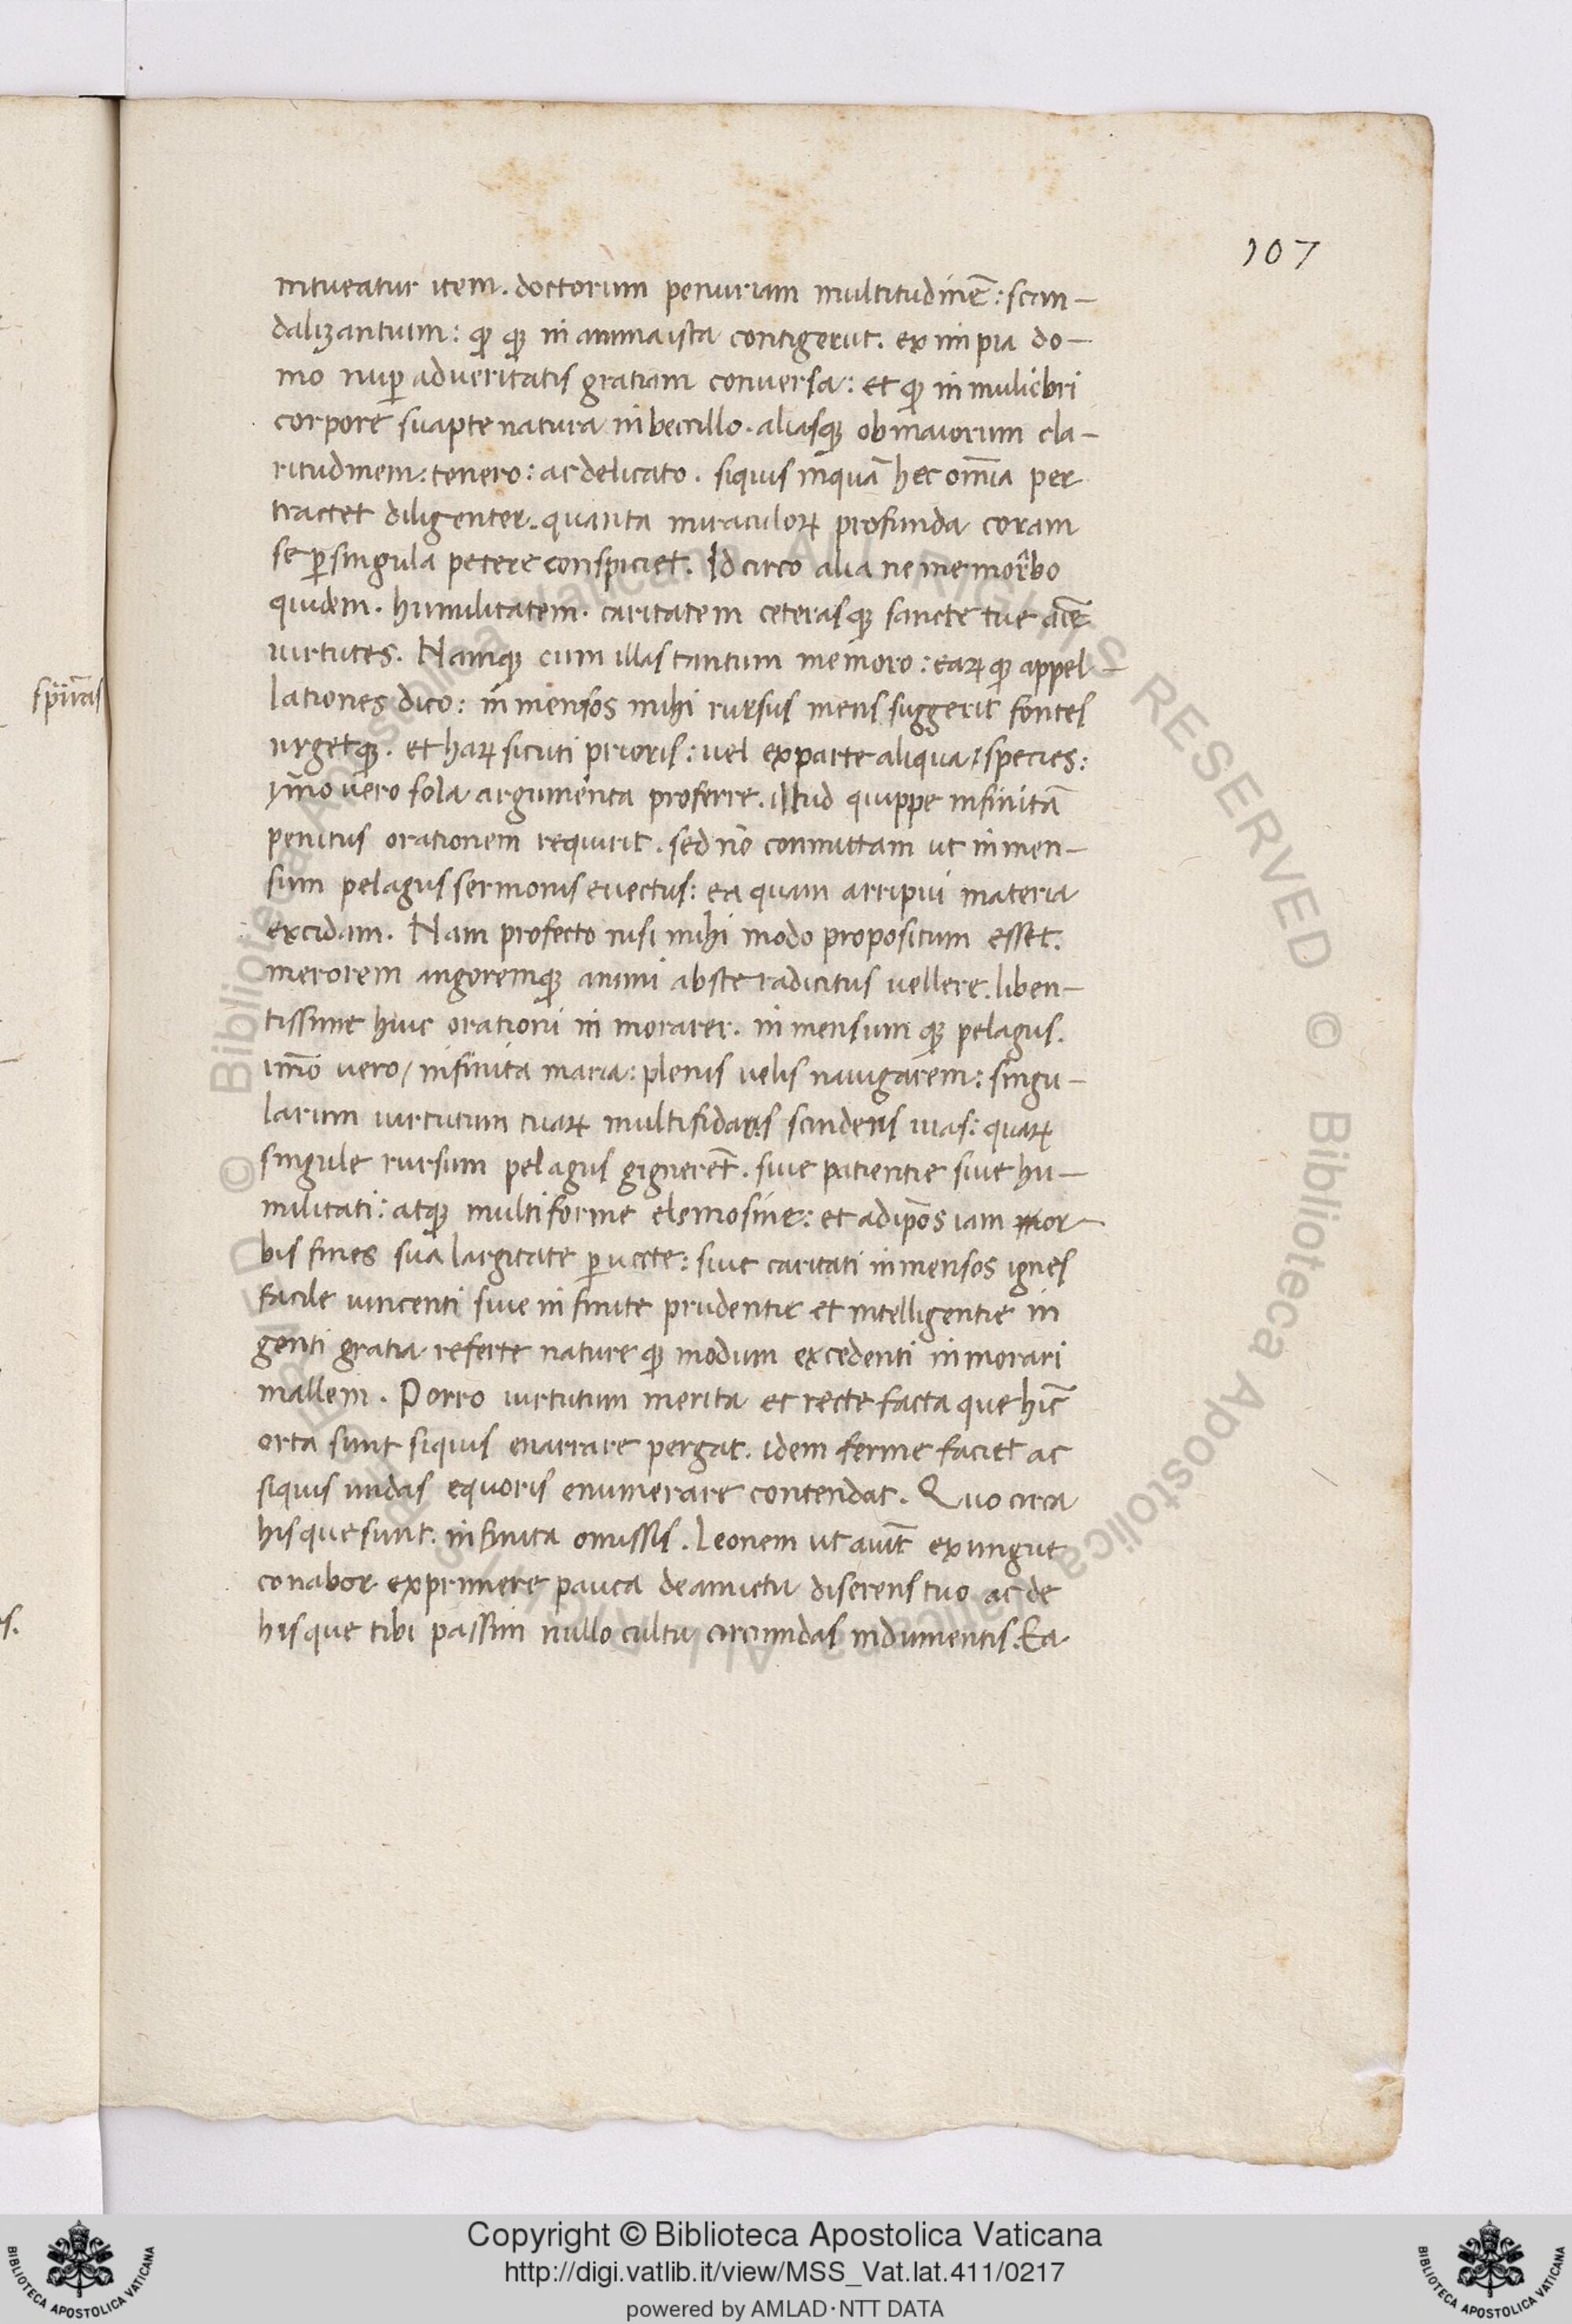 107
intueatur item. doctorum penuriam multitudinē: scan-
dalizantium: qꝫ qꝫ in anima ista contigerūt. ex impia do-
mo nuꝑ ad ueritatis gratiam conuersa: et qꝫ in muliebri
corpore suapte natura inbecillo. aliasqꝫ ob maiorum cla-
ritudinem: tenero: ac delicato. siquis inquā hec om̄ia per
tractet diligenter. quanta miraculoꝝ profunda coram
se ꝑ singula petere conspiciet. Id circo alia ne memorbo
quidem. humilitatem. caritatem ceterasqꝫ sancte tue aīe
uirtutes. Namqꝫ cum illas tantum memoro: eaꝝqꝫ appel-
lationes dico: inmensos mihi rursus mens suggerit fontes
urgetqꝫ. et haꝝ sicuti prioris: uel ex parte aliqua/species:
ym̄o uero sola argumenta proferre. illud quippe infinitā
penitus orationem requirit. sed nō committam ut inmen-
sum pelagus sermonis euectus: ea quam arripui materia
excidam. Nam profecto nisi mihi modo propositum esset.
merorem angoremqꝫ animi abs te radicitus uellere. liben-
tissime huic orationi in morarer. inmensum qꝫ pelagus.
im̄o uero/infinita maria: plenis uelis nauigarem: singu-
larum uirtutum tuaꝝ multifidas scindens uias: quaꝝ
singule rursum pelagus gignerēt. siue patientie siue hu-
militati: atqꝫ multiforme elemosine: et ad ip̄os iam or-
bis fines sua largitate ꝑuecte: siue caritati inmensos ignes
facile uincenti siue infinite prudentie et intelligentie in
genti gratia referte nature qꝫ modum excedenti inmorari
mallem. Porro uirtutum merita et recte facta que hīc
orta sunt siquis enarrare pergat. idem ferme faciet ac
siquis undas equoris enumerare contendat. Quo circa
his que sunt: infinita omissis. Leonem ut aiūt ex ungue
conabor exprimere pauca de amictu diserens tuo ac de
his que tibi passim nullo cultu circumdas indumentis. Ea
Copyright © Biblioteca Apostolica Vaticana
http://digi.vatlib.it/view/MSS_Vat.lat.411/0217
powered by AMLAD·NTT DATA